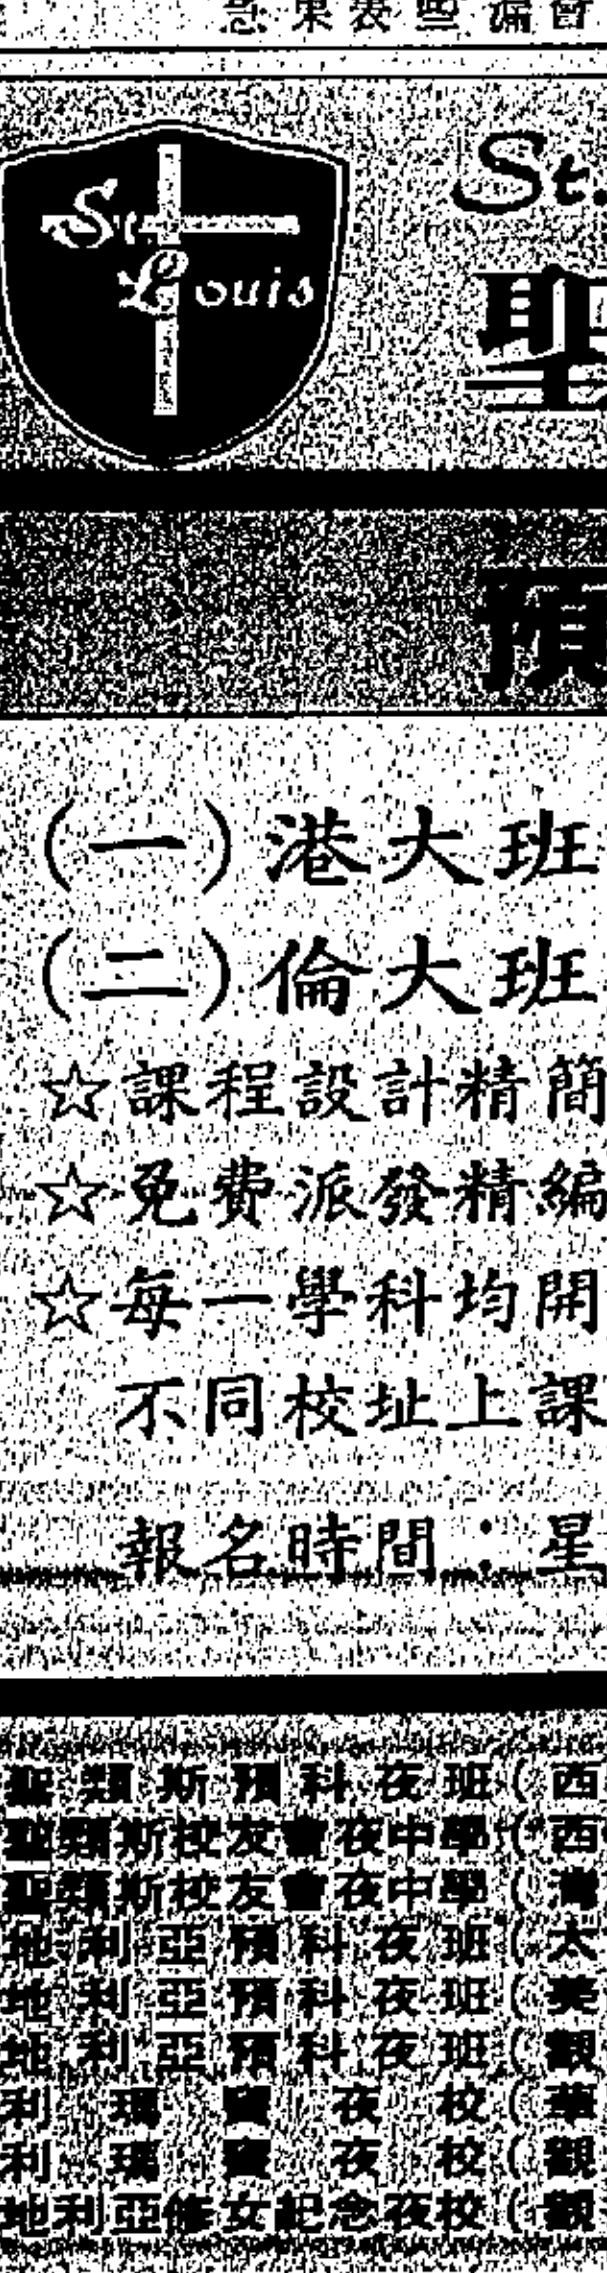 急 東 表 些 漏 會
St.
St. Louis
聖
預
(一)港大班
(二)倫大班
☆課程設計精簡
☆免費派發精編
☆每一學科均開
不同校址上課
報名時間：星
聖類斯預科夜班(西
聖類斯校友會夜中學(西
聖類斯校友會夜中學(灣
地利亞預科夜班(太
地利亞預科夜班(美
地利亞預科夜班(觀
利瑪竇夜校(華
利瑪竇夜校(觀
地利亞修女紀念夜校(觀